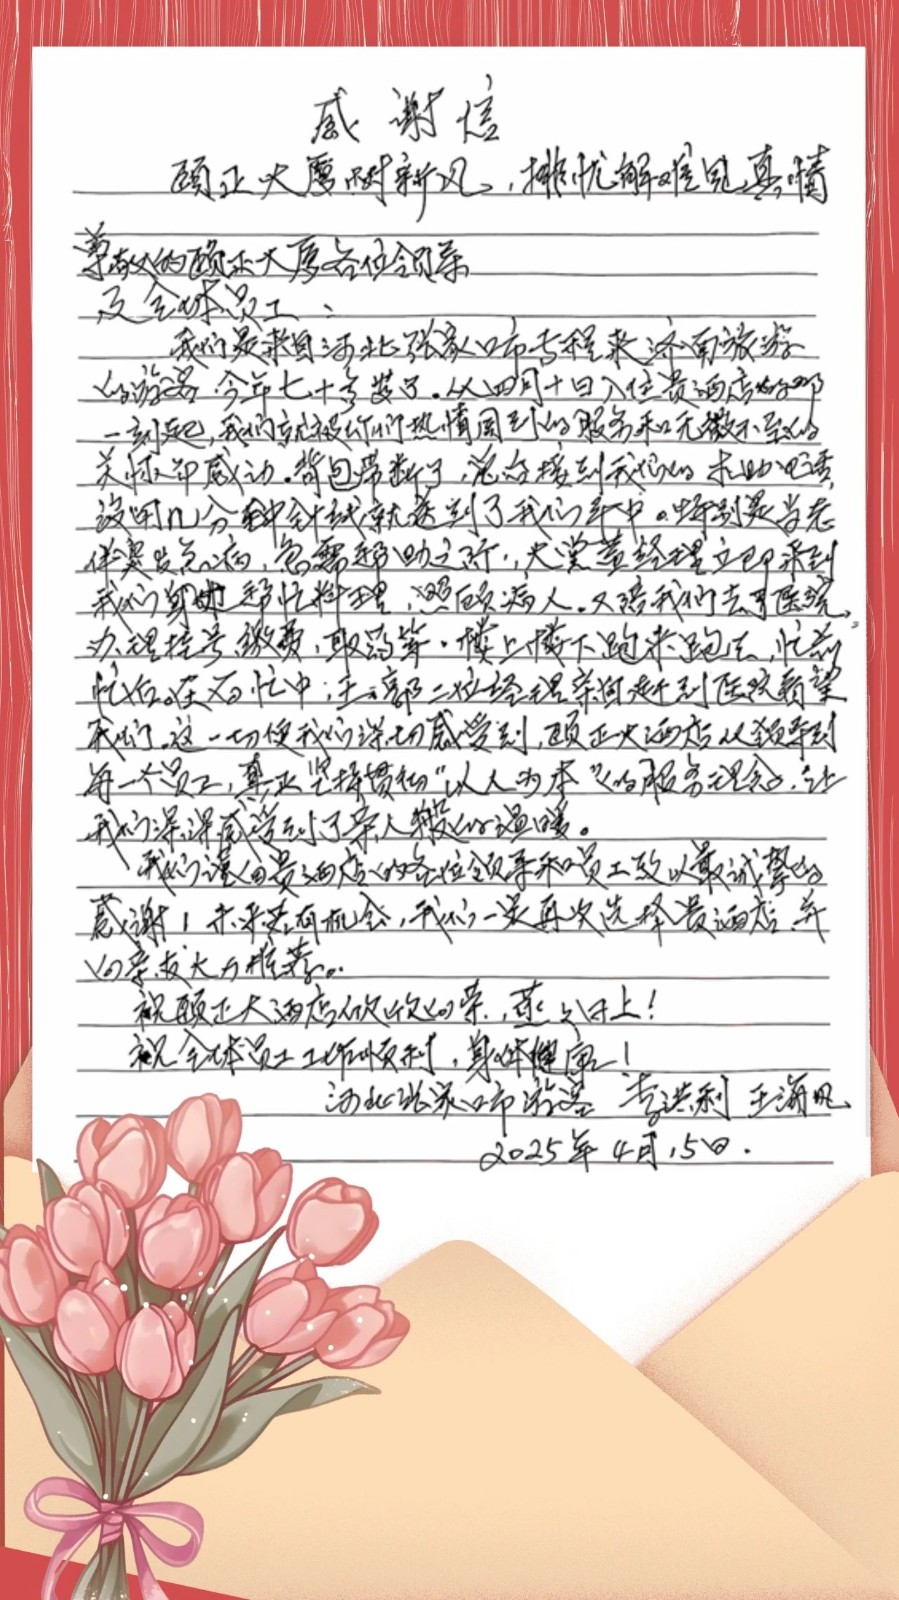 感谢信
颐正大厦树新风,排忧解难见真情
尊敬的颐正大厦各位领导
及全体员工:
我们是来自河北张家口市专程来济南旅游
的游客今年七十多岁了。从四月十日入住贵酒店的那
一刻起,我们就被你们热情周到的服务和无微不至的
关怀所感动。背包带断了,总台接到我们的求助电话,
没用几分钟针线就送到了我们手中。特别是当老
伴突发急病,急需帮助之际,大堂董经理立即来到
我们身边帮忙料理,照顾病人。又陪我们去了医院,
办理挂号,缴费,取药等。楼上楼下跑来跑去,忙前
忙后。在百忙中;王.郭二位经理亲自赶到医院看望
我们。这一切使我们深切感受到,颐正大酒店从领导到
每一个员工,真正坚持贯彻“以人为本”的服务理念。让
我们深深感受到了亲人般的温暖。
我们谨向贵酒店的各位领导和员工致以最诚挚的
感谢!未来若有机会,我们一定再次选择贵酒店,并
向亲友大力推荐。
祝颐正大酒店欣欣向荣,蒸蒸日上!
祝全体员工工作顺利,身体健康!
河北张家口市游客 李洪利 王海凤
2025年4月15日.